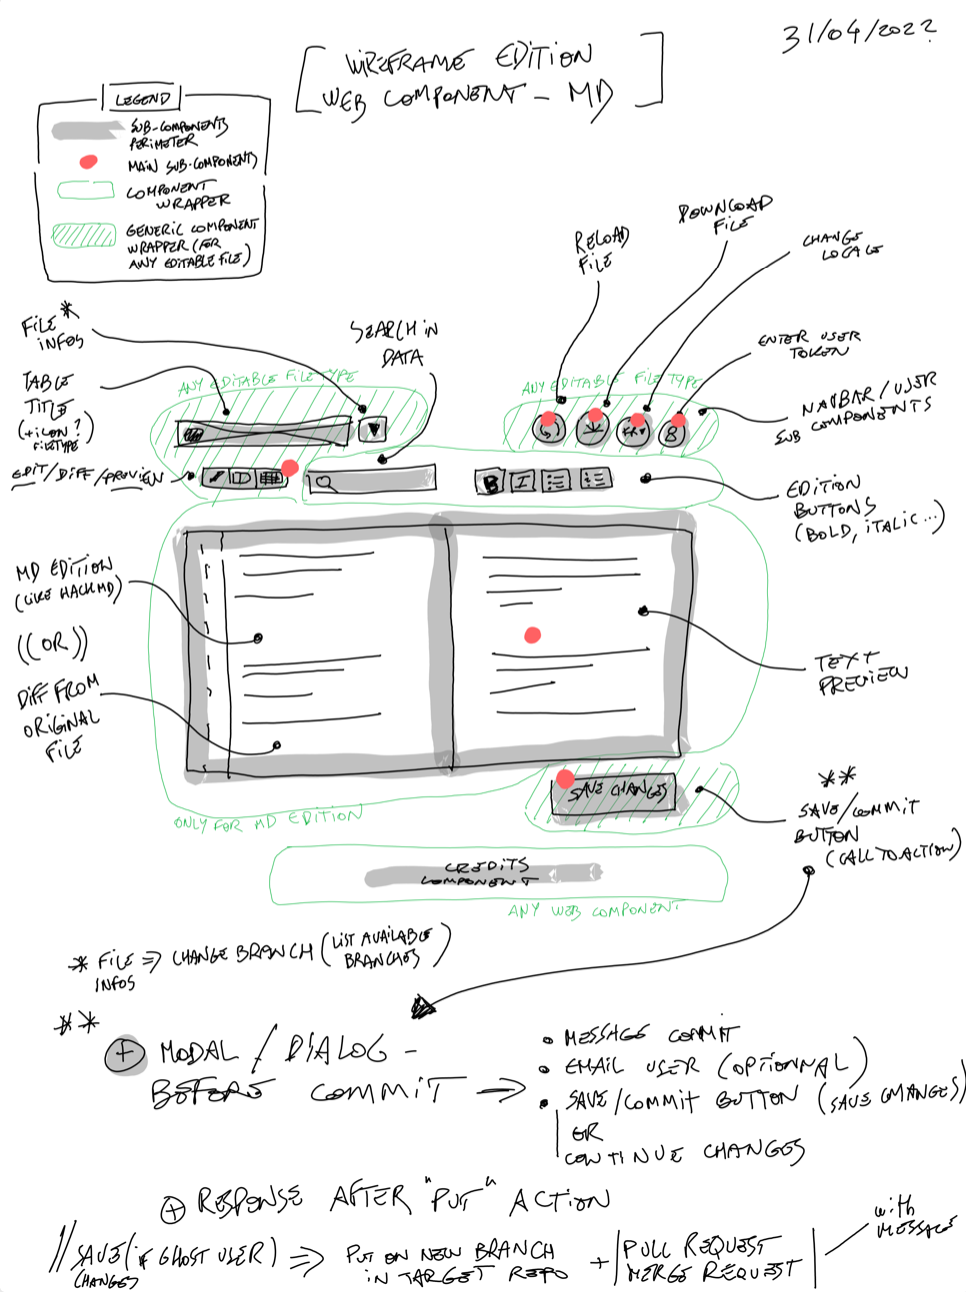 31/04/2022
WIREFRAME EDITION
WEB COMPONENT - MD
LEGEND
SUB-COMPONENTS
PERIMETER
MAIN SUB-COMPONENTS
COMPONENT
WRAPPER
GENERIC COMPONENT
WRAPPER (FOR
ANY EDITABLE FILE)
RELOAD
FILE
DOWNLOAD
FILE
CHANGE
LOCALE
ENTER USER
TOKEN
NAVBAR / USER
SUB COMPONENTS
FILE *
INFOS
SEARCH IN
DATA
TABLE
TITLE
(+ ICON ?
FILETYPE)
EDIT / DIFF / PREVIEW
ANY EDITABLE FILE TYPE
ANY EDITABLE FILE TYPE
B I
EDITION
BUTTONS
(BOLD, ITALIC...)
MD EDITION
(LIKE HACKMD)
((OR))
DIFF FROM
ORIGINAL
FILE
TEXT
PREVIEW
SAVE CHANGES
ONLY FOR MD EDITION
**
SAVE / COMMIT
BUTTON
(CALL TO ACTION)
CREDITS
COMPONENT
ANY WEB COMPONENT
* FILE => CHANGE BRANCH (LIST AVAILABLE
INFOS BRANCHES)
**
+ MODAL / DIALOG -
BEFORE COMMIT →
• MESSAGE COMMIT
• EMAIL USER (OPTIONNAL)
• SAVE / COMMIT BUTTON (SAVE CHANGES)
OR
CONTINUE CHANGES
+ RESPONSE AFTER "PUT" ACTION
// SAVE (IF GHOST USER) => PUT ON NEW BRANCH + | PULL REQUEST
CHANGES IN TARGET REPO MERGE REQUEST |
with
MESSAGE